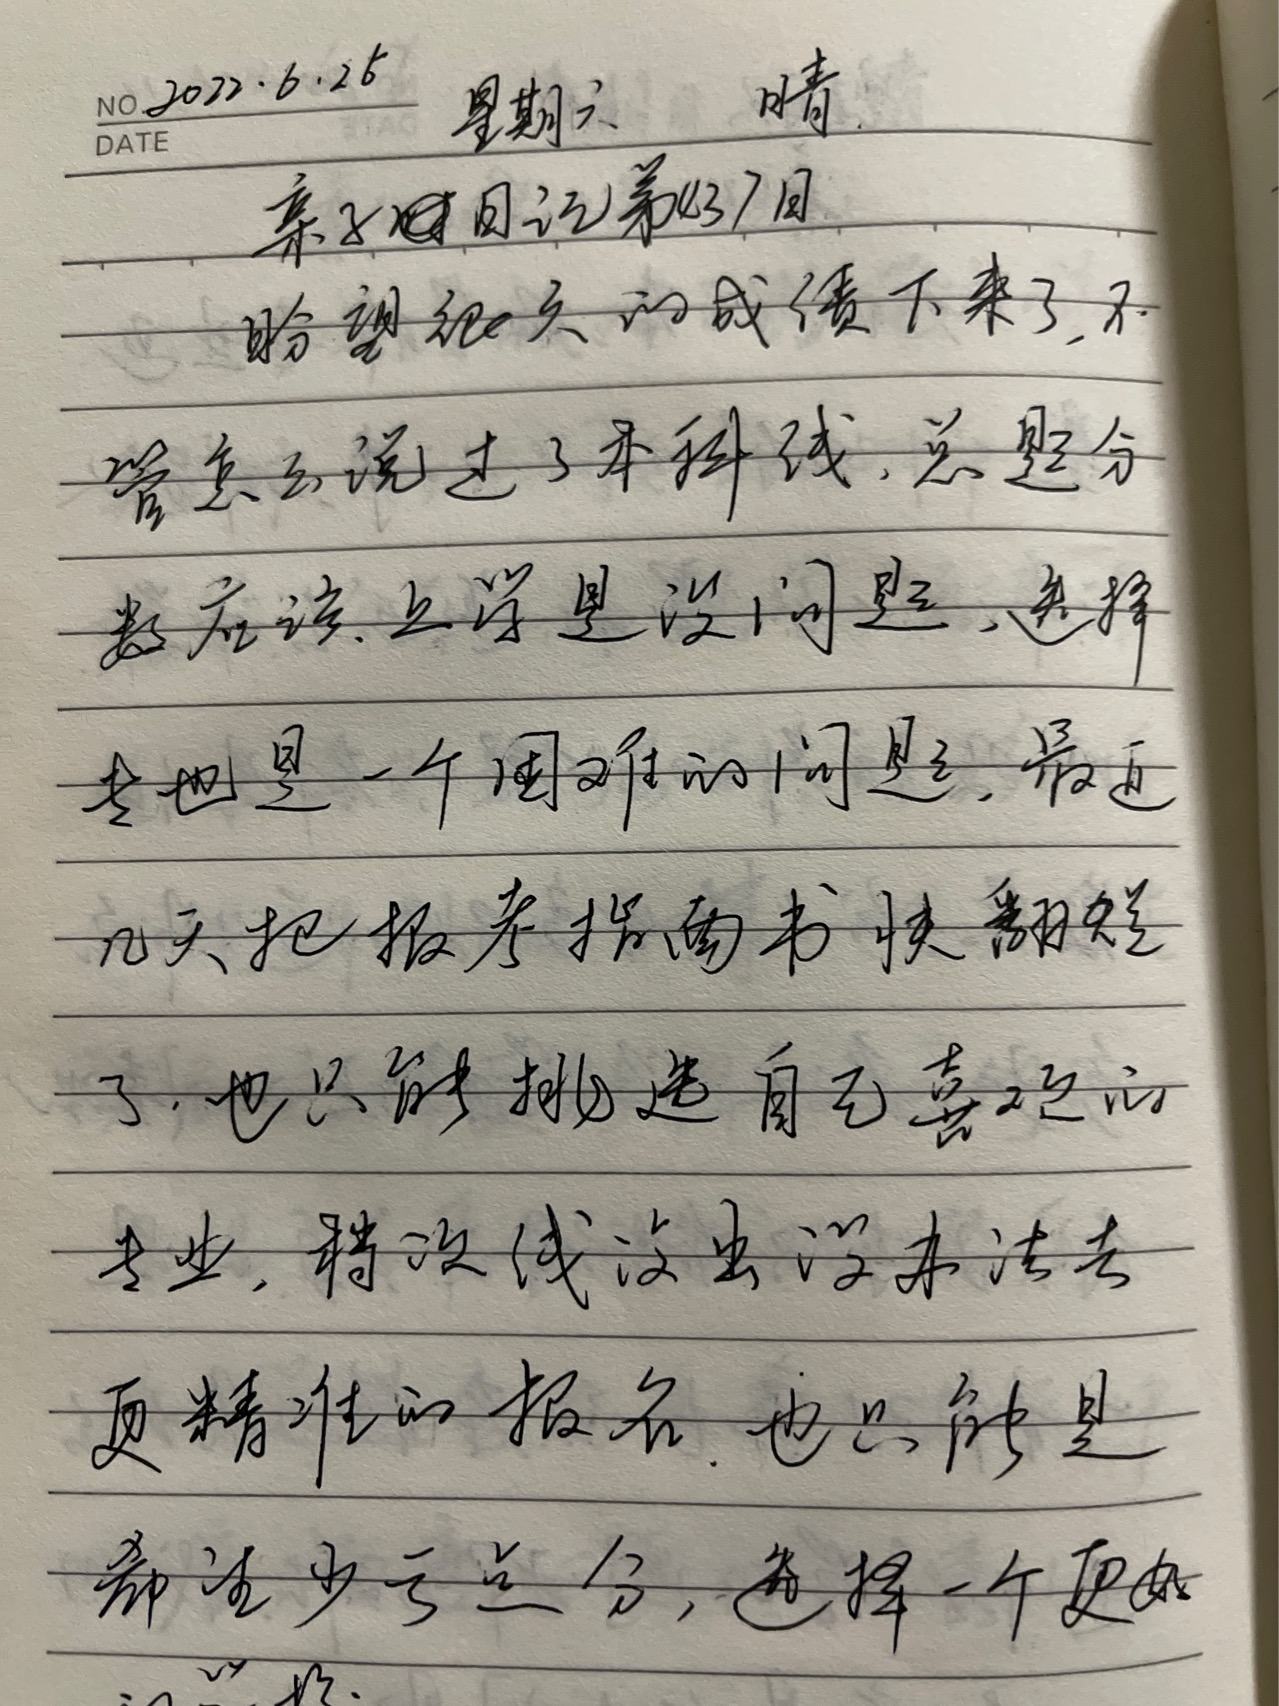 NO. 2022.6.25
DATE
星期六 晴.
亲子日记第437日
盼望很久的成绩下来了,不
管怎么说过了本科线,总题分
数应该上学是没问题,选择
专也是一个困难的问题,最近
几天把报考指南书快翻烂
了.也只能挑选自己喜欢的
专业,稍次线没出没办法去
更精准的报名.也只能是
希望少亏点分,选择一个更好
的学校.